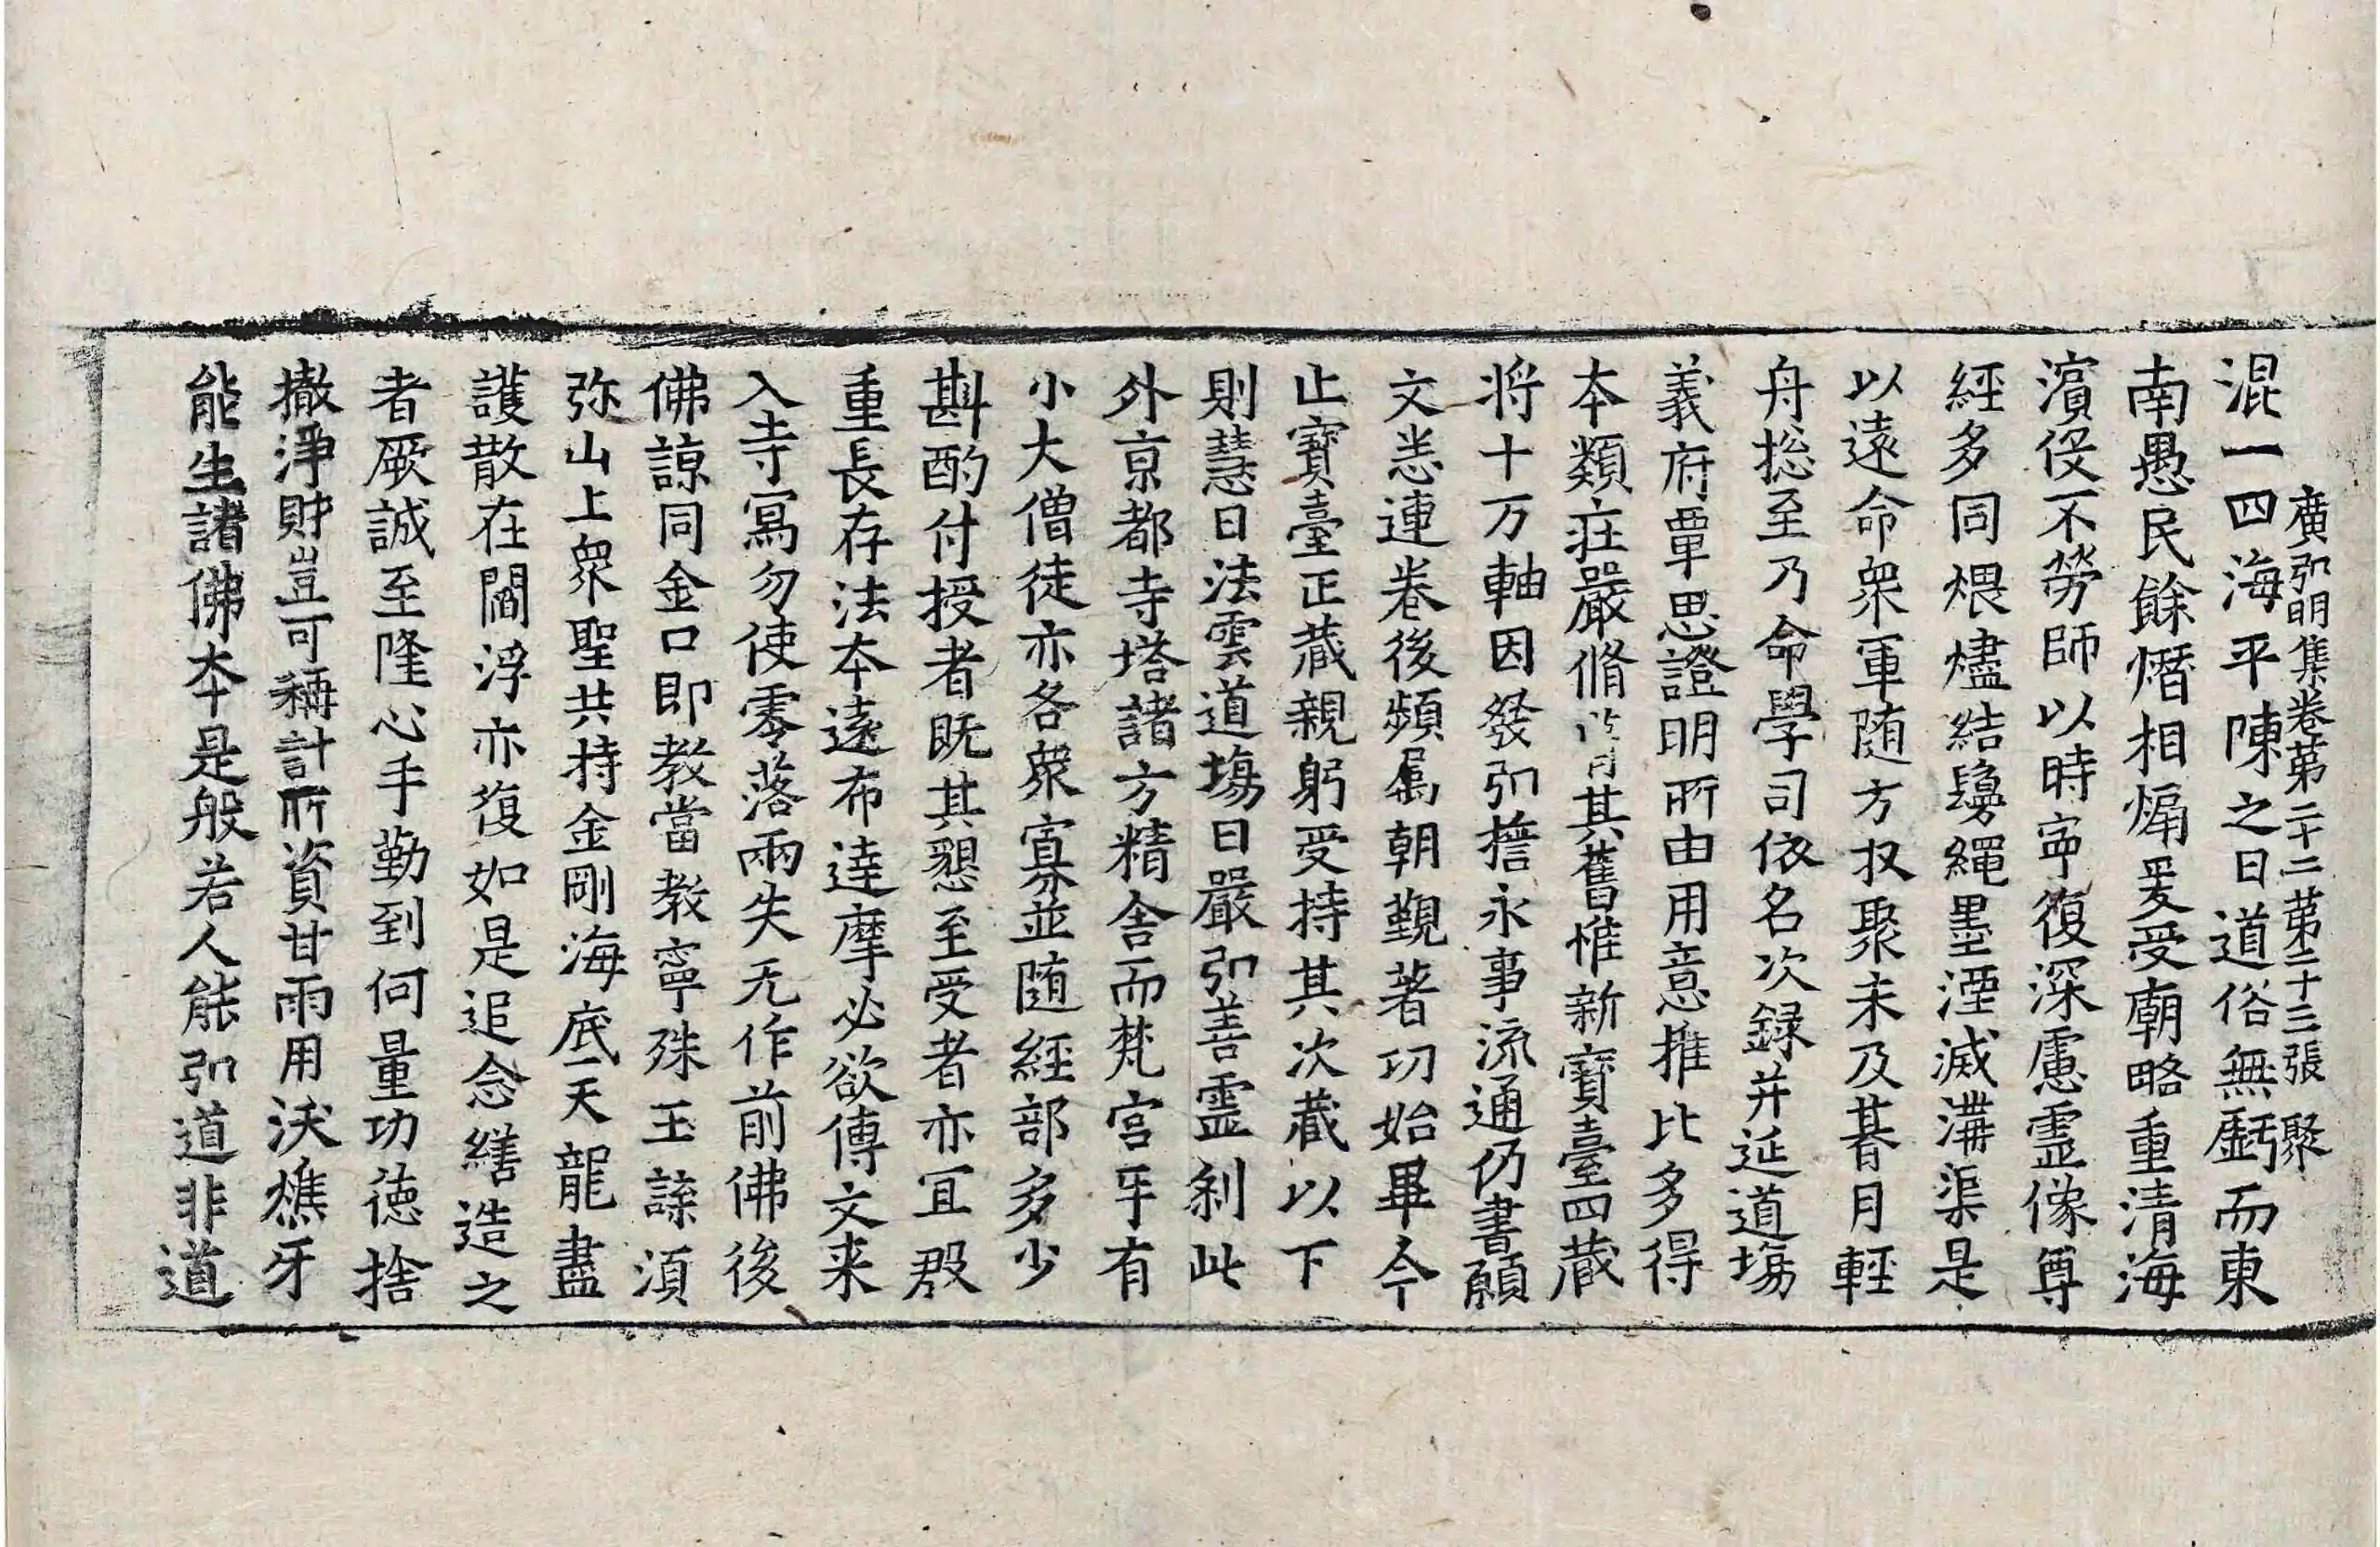 廣弘明集卷第二十二第二十三張　聚
混一四海平陳之日道俗無虧而東
南愚民餘熸相煽爰受廟略重清海
濵役不勞師以時寜復深慮霊像尊
經多同煨燼結鬘繩墨湮滅溝渠是
以遠命衆軍随方収聚未及朞月輕
舟捴至乃命學司依名次録并延道塲
義府覃思證明所由用意推比多得
本類莊嚴脩其舊惟新寶臺四藏
将十万軸因發弘擔永事流通仍書願
文恙連卷後頻属朝覲著功始畢今
止寶臺正藏親躬受持其次藏以下
則慧日法雲道塲日嚴弘善霊刹此
外京都寺塔諸方精舍而梵宫互有
小大僧徒亦各衆寡並随經部多少
斟酌付授者既其懇至受者亦宜殷
重長存法本遠布達摩必欲傳文来
入寺冩勿使零落兩失无作前佛後
佛諒同金口即教當教寧殊玉諜湏
弥山上衆聖共持金剛海底天龍盡
護散在閻浮亦復如是追念繕造之
者厥誠至隆心手勤到何量功徳捨
撤淨財豈可稱計所資甘雨用沃燋牙
能生諸佛本是般若人能弘道非道